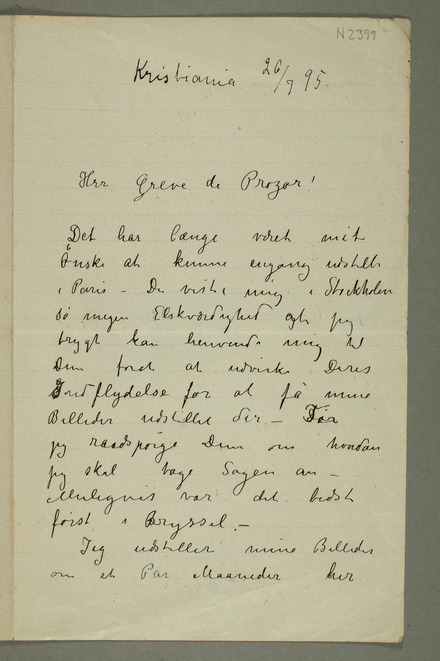 N 2399
Kristiania 26/9 95.
Herr Greve de Prozor!
Det har længe været mit
Ønske at kunne engang udstille
i Paris – De viste mig i Stockholm
så megen Elskværdighed at jeg
trygt kan henvende mig til
Dem for at udvirke Deres
Indflydelse for at få mine
Billeder udstillet der. – Tør
jeg raadspørge Dem om hvordan
jeg skal tage Sagen an –
Muligvis var det bedst
først i Bryssel. –
Jeg udstiller mine Billeder
om et Par Maaneder her